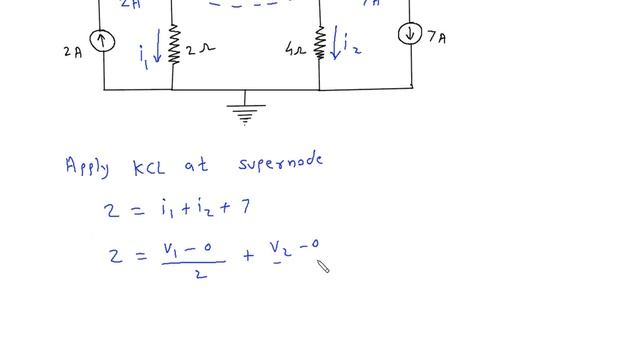 2A 7A
2A i₁ 2Ω 4Ω i₂ 7A
Apply KCL at supernode
2 = i₁ + i₂ + 7
2 = V₁ - 0 / 2 + V₂ - 0